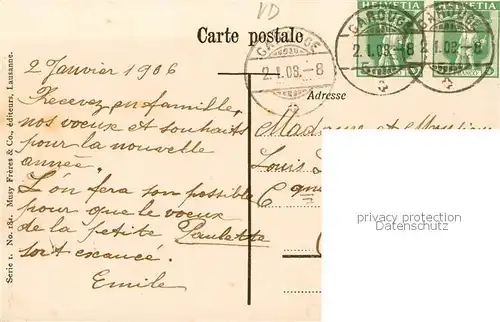 VD
Carte postale
HELVETIA HELVETIA
CAROUGE
2.I.08.-8
CAROUGE
2.I.08.-8
CAROUGE
2.I.08.-8
Adresse
2 Janvier 1906
Recevez en famille,
nos voeux et souhaits
pour la nouvelle
année.
L'on fera son possible
pour que le voeux
de la petite Paulette
soit exaucé.
Emile
Madame et Monsieur
Louis
privacy protection
Datenschutz
Serie 1. No. 181. Musy Frères & Co., éditeurs, Lausanne.